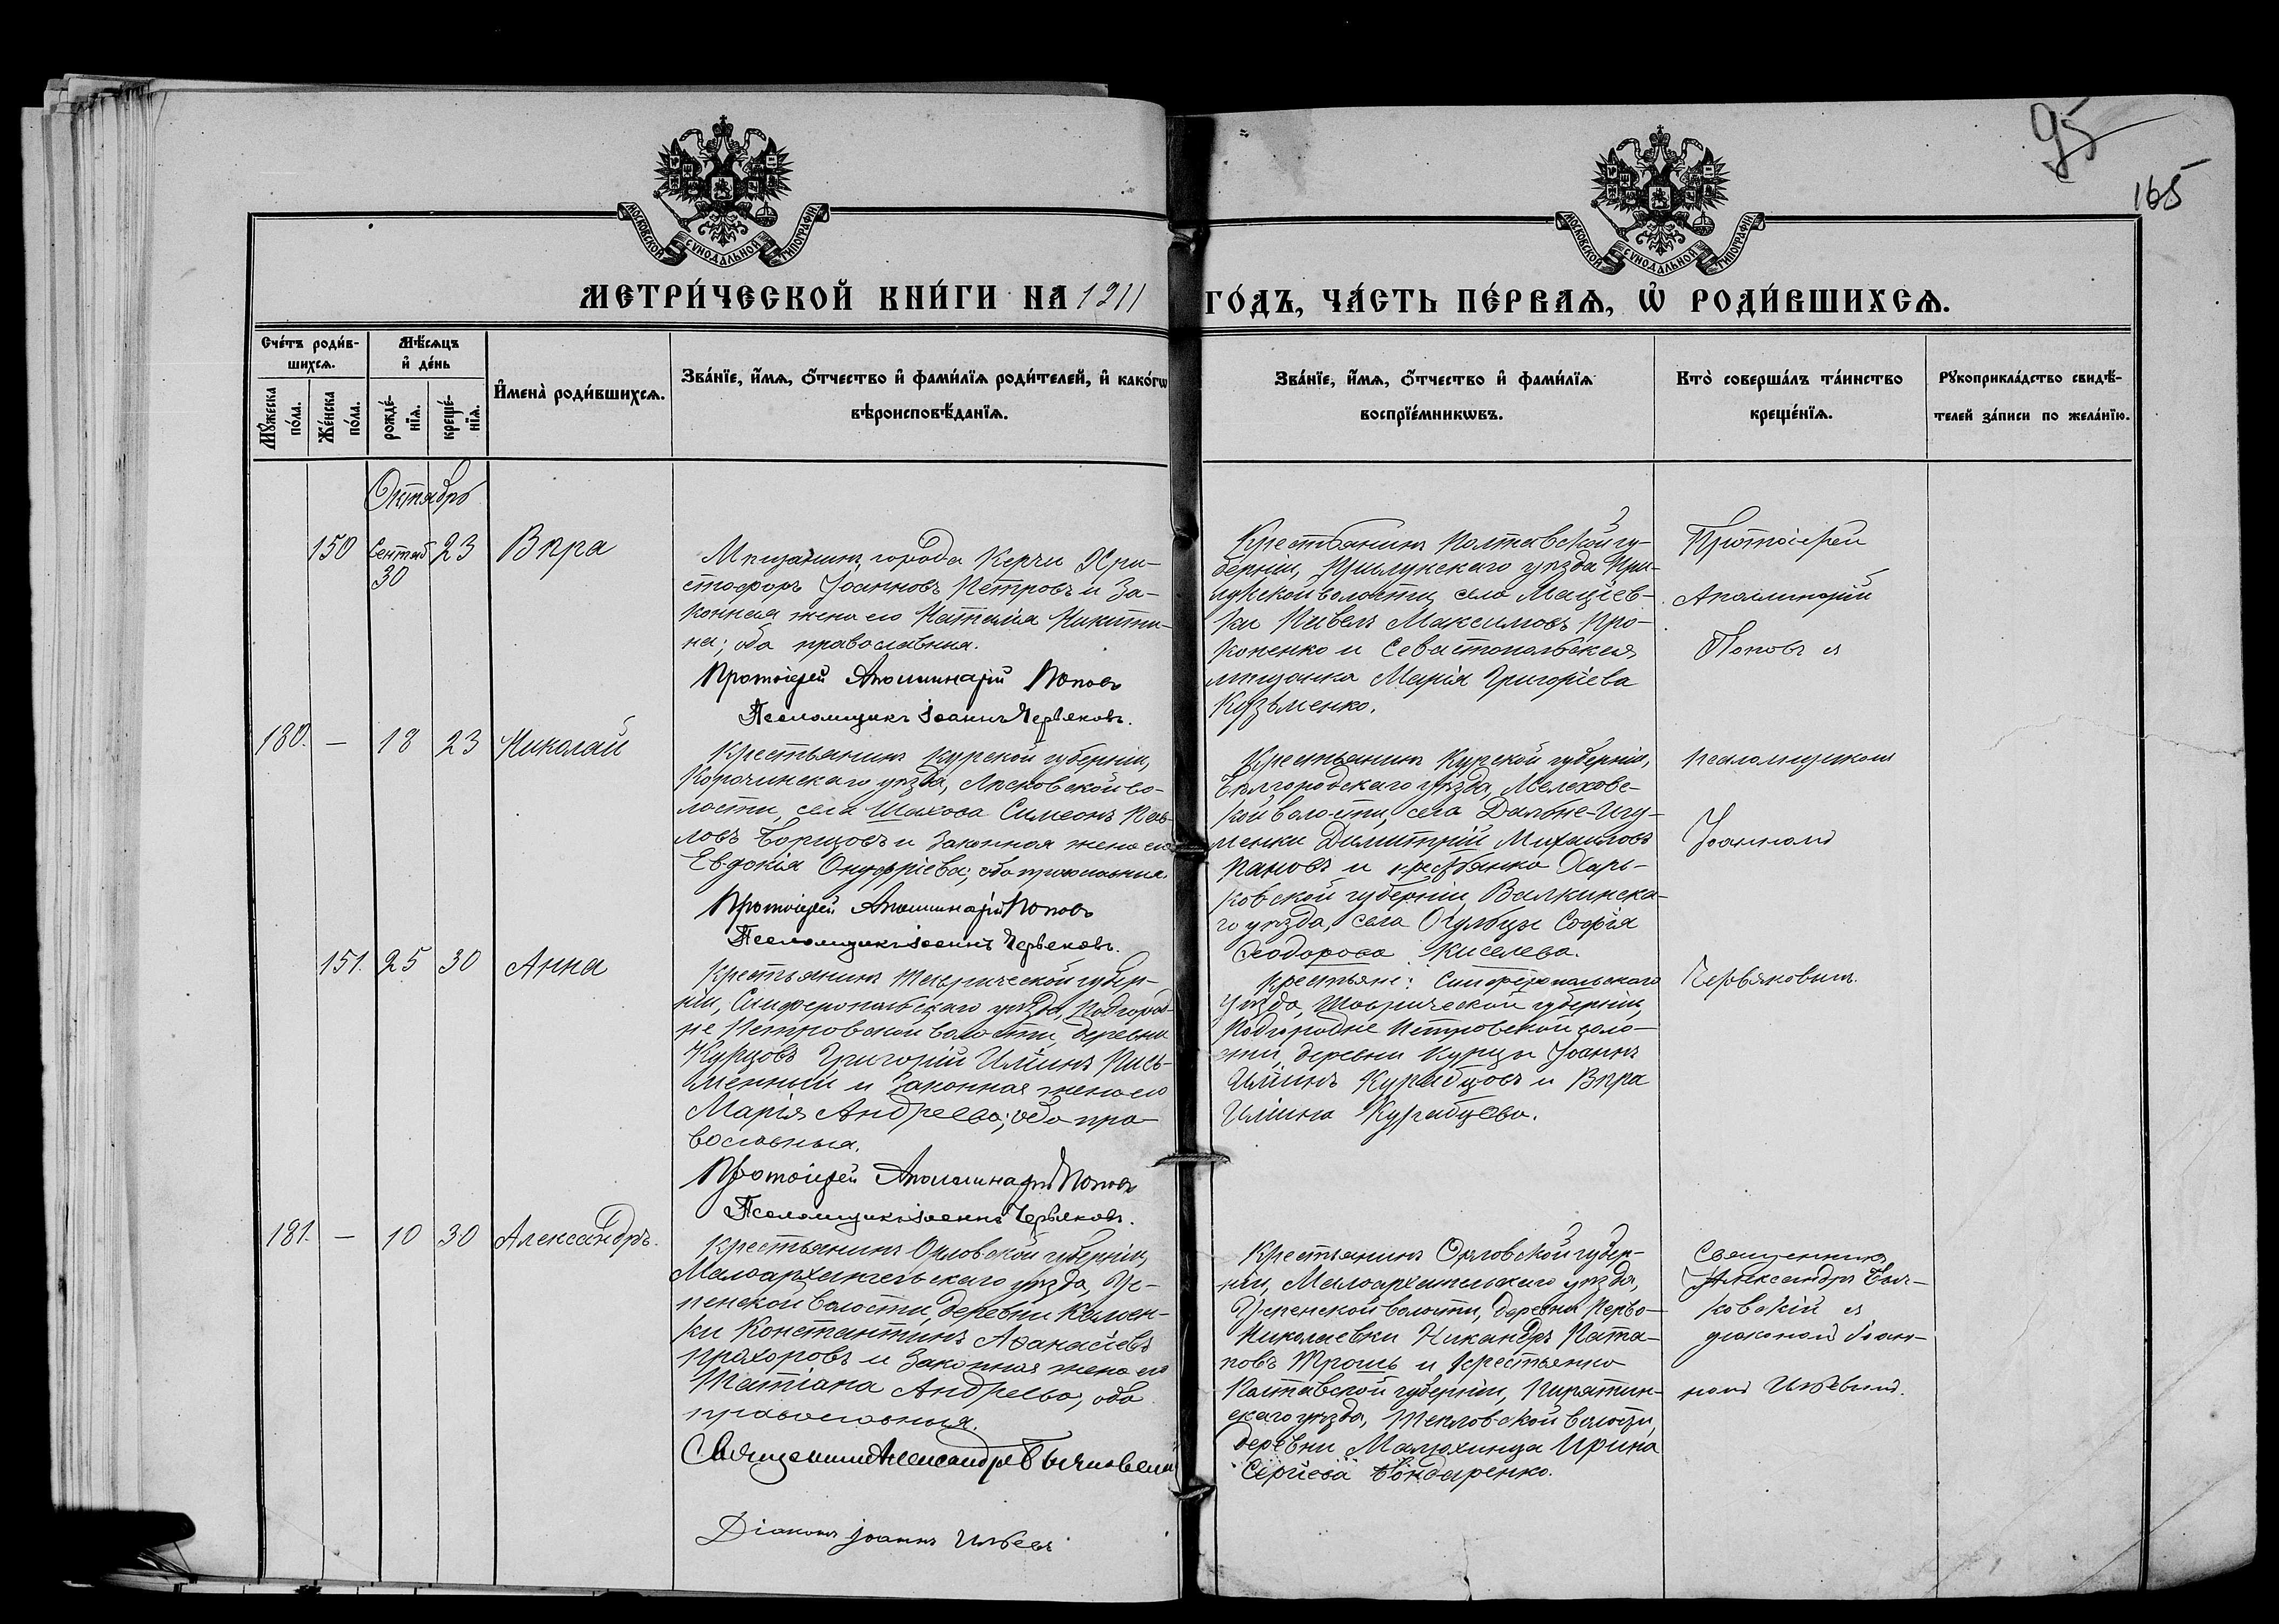 95
165
МОСКОВСКОЙ СѴНОДАЛЬНОЙ ТИПОГРАФІИ
МОСКОВСКОЙ СѴНОДАЛЬНОЙ ТИПОГРАФІИ
МЕТРИ́ЧЕСКОЙ КНИ́ГИ НА 1911 ГО́ДЪ, ЧА́СТЬ ПЕ́РВАѦ, Ѡ҆ РОДИ́ВШИХСѦ.
Сче́тъ роди́в-
шихсѧ.
Мꙋ́жеска по́ла.
Же́нска по́ла.
Мѣ́сѧцъ
и҆ де́нь
рожде́-
нїѧ.
креще́-
нїѧ.
И҆мена̀ роди́вшихсѧ.
Зва́нїе, и҆́мѧ, ѻ҆́тчество и҆ фами́лїѧ роди́телей, и҆ како́гѡ
вѣроисповѣ́данїѧ.
Зва́нїе, и҆́мѧ, ѻ҆́тчество и҆ фами́лїѧ
воспрїе́мникѡвъ.
Кто̀ соверша́лъ та́инство
креще́нїѧ.
Рꙋкоприкла́дство свидѣ́-
телей за́писи по жела́нїю.
Октябрь
150 Сентяб 30 23 Вѣра
Мѣщанинъ города Керчи Хри-
стофоръ Іоанновъ Петровъ и за-
конная жена его Наталія Никити-
на; оба православныя.
Протоіерей Аполлинарій Поповъ
Псаломщикъ Іоаннъ Червяковъ.
Крестьянинъ Полтавской гу-
берніи, Прилукскаго уѣзда, При-
лукской волости, села Маціев-
ки Павелъ Максимовъ Про-
копенко и Севастопольская
мѣщанка Марія Григоріева
Кузьменко.
Протоіерей
Аполлинарій
Поповъ съ
180. — 18 23 Николай
Крестьянинъ Курской губерніи,
Корочинскаго уѣзда, во-
лости, села Шахова Симеонъ Пав-
ловъ Борщовъ и законная жена его
Евдокія Онуфріева; оба православныя.
Протоіерей Аполлинарій Поповъ
Псаломщикъ Іоаннъ Червяковъ.
Крестьянинъ Курской губерніи,
Бѣлгородскаго уѣзда, Мелехов-
ской волости, села Дальне-Игу-
менки Димитрій Михаиловъ
Пановъ и крестьянка Харь-
ковской губерніи, Валкинска-
го уѣзда, села Огульцы Софія
Ѳеодорова Киселева.
псаломщикомъ
Іоанномъ
151. 25 30 Анна
Крестьянинъ Таврической губер-
ніи, Симферопольскаго уѣзда, Подгород-
не Петровской волости, деревни
Курцовъ Григорій Иліинъ Пись-
менный и законная жена его
Марія Андреева; оба пра-
вославныя.
Протоіерей Аполлинарій Поповъ
Псаломщикъ Іоаннъ Червяковъ.
Крестьяне: Симферопольскаго
уѣзда, Таврической губерніи,
Подгородне Петровской воло-
сти, деревни Курцы Іоаннъ
Иліинъ и Вѣра
Иліина
Червяковымъ.
181. — 10 30 Александръ.
Крестьянинъ Орловской губерніи,
Малоархангельскаго уѣзда, Ус-
пенской волости, деревни Камен-
ки Константинъ Аѳанасіевъ
Прохоровъ и законная жена его
Татіана Андреева; оба
православныя.
Священникъ Александръ Бычковскій
Діаконъ Іоаннъ Ильевъ
Крестьянинъ Орловской губер-
ніи, Малоархангельскаго уѣзда,
Успенской волости, деревни Перво-
Николаевки Никандръ Пата-
повъ и крестьянка
Полтавской губерніи, Пирятин-
скаго уѣзда, волости,
деревни Малютинца Ирина
Сергіева Бондаренко.
Священникъ
Александръ Быч-
ковскій съ
діакономъ Іоан-
номъ Ильевымъ.